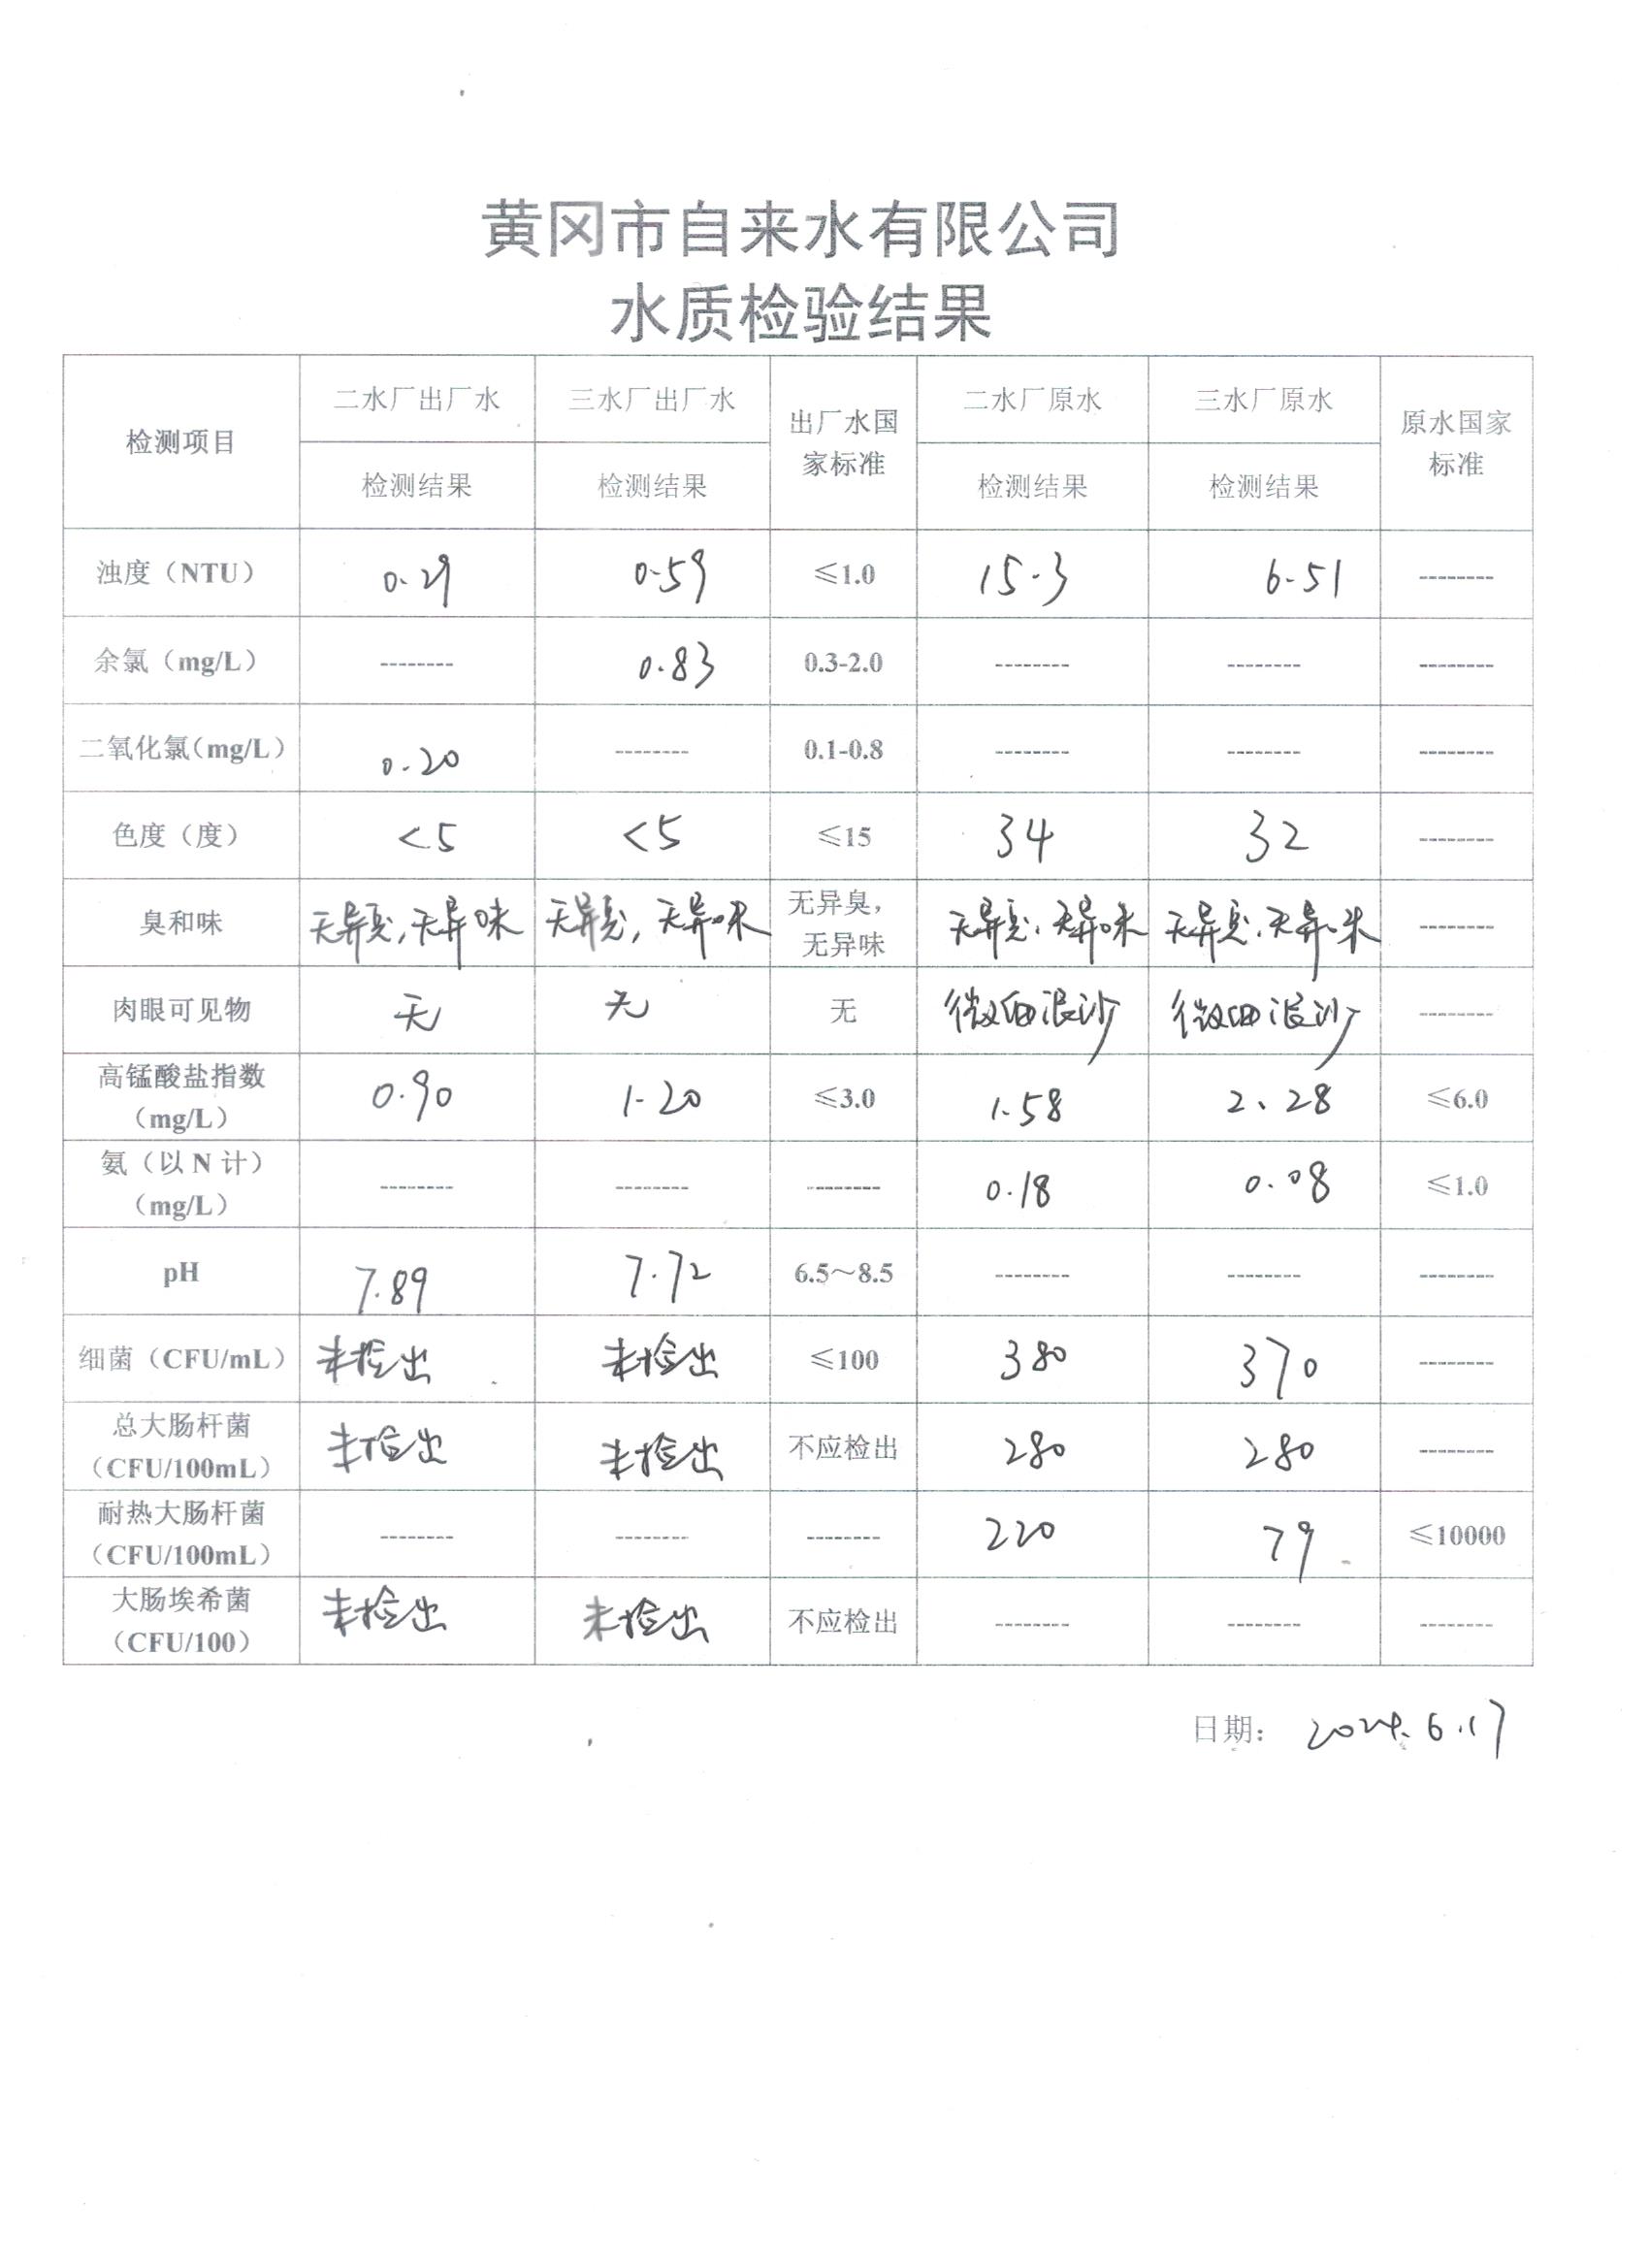 黄冈市自来水有限公司
水质检验结果
检测项目 二水厂出厂水 三水厂出厂水 出厂水国家标准 二水厂原水 三水厂原水 原水国家标准
检测结果 检测结果 检测结果 检测结果
浊度（NTU） 0.29 0.59 ≤1.0 15.3 6.51 --------
余氯（mg/L） -------- 0.83 0.3-2.0 -------- -------- --------
二氧化氯（mg/L） 0.20 -------- 0.1-0.8 -------- -------- --------
色度（度） <5 <5 ≤15 34 32 --------
臭和味 无异臭,无异味 无异臭,无异味 无异臭，无异味 无异臭、无异味 无异臭、无异味 --------
肉眼可见物 无 无 无 微细泥沙 微细泥沙 --------
高锰酸盐指数（mg/L） 0.90 1.20 ≤3.0 1.58 2.28 ≤6.0
氨（以 N 计）（mg/L） -------- -------- -------- 0.18 0.08 ≤1.0
pH 7.89 7.72 6.5～8.5 -------- -------- --------
细菌（CFU/mL） 未检出 未检出 ≤100 380 370 --------
总大肠杆菌（CFU/100mL） 未检出 未检出 不应检出 280 280 --------
耐热大肠杆菌（CFU/100mL） -------- -------- -------- 220 79 ≤10000
大肠埃希菌（CFU/100） 未检出 未检出 不应检出 -------- -------- --------
日期： 2024.6.17